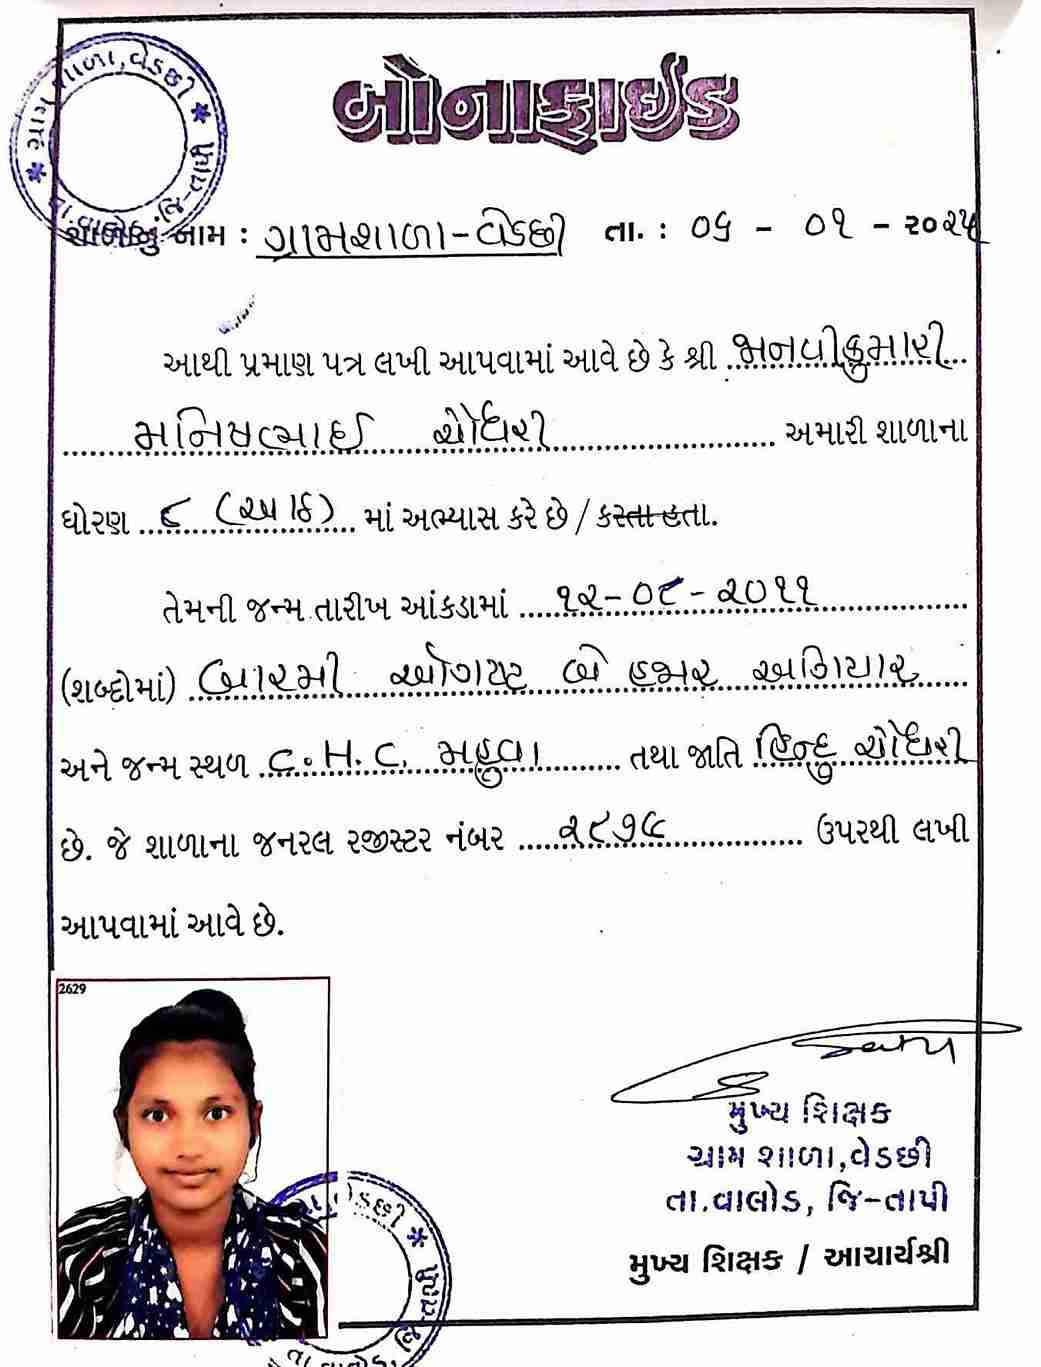 બોનાફાઈડ
શાળાનું નામ : ગ્રામશાળા-વેડછી તા. : ૦૬ - ૦૧ - ૨૦૨૫
આથી પ્રમાણ પત્ર લખી આપવામાં આવે છે કે શ્રી માનવીકુમારી
મનિષભાઈ ચૌધરી અમારી શાળાના
ધોરણ ૮ (આઠ) માં અભ્યાસ કરે છે / કરતા હતા.
તેમની જન્મ તારીખ આંકડામાં ૧૨-૦૮-૨૦૧૧
(શબ્દોમાં) બારમી ઓગષ્ટ બે હજાર અગિયાર
અને જન્મ સ્થળ C.H.C. મહુવા તથા જાતિ હિન્દુ ચૌધરી
છે. જે શાળાના જનરલ રજીસ્ટર નંબર ૨૮૭૯ ઉપરથી લખી
આપવામાં આવે છે.
2629
મુખ્ય શિક્ષક
ગ્રામ શાળા,વેડછી
તા.વાલોડ, જિ-તાપી
મુખ્ય શિક્ષક / આચાર્યશ્રી